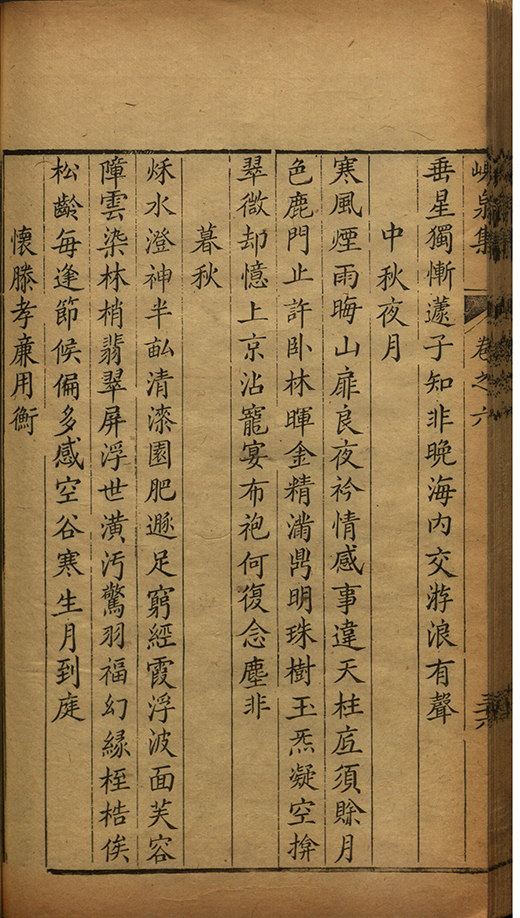 峴泉集 卷之六
垂星獨慚蘧子知非晚海内交游浪有聲
中秋夜月
寒風煙雨晦山扉良夜衿情感事違天柱㡳須賖月
色鹿門止許卧林暉金精滿鼎明珠樹玉炁凝空揜
翠微却憶上京沾寵宴布袍何復念塵非
暮秋
秌水澄神半畝清漆園肥遯足窮經霞浮波面芙容
障雲染林梢翡翠屏浮世潢汚驚羽福幻緣桎梏俟
松齡每逢節候偏多感空谷寒生月到庭
懷滕孝廉用衡